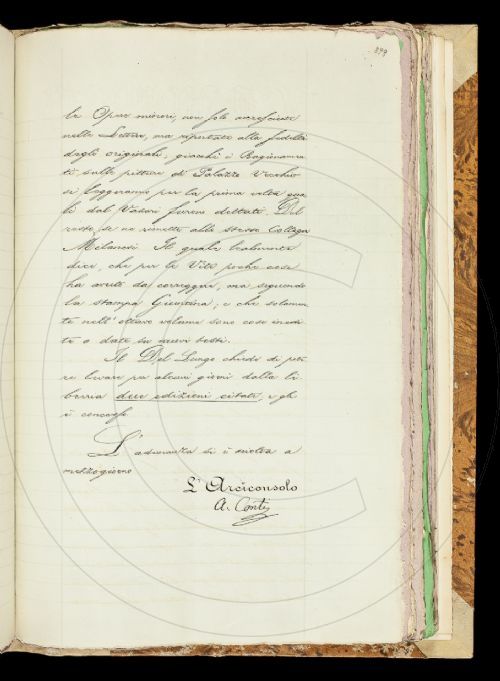 le Opere minori, non solo accresciute
nelle Lettere, ma riportate alla fedeltà
degli originali, giacchè i Ragionamen
ti sulle pitture di Palazzo Vecchio
si leggeranno per la prima volta qua
li dal Vasari furono dettati. Del
resto, se ne rimette allo stesso Collega
Milanesi. Il quale lealmente
dice, che per le Vite poche cose
ha avute da correggere, ma seguendo
la stampa Giuntina; e che solamen
te nell'ottavo volume sono cose inedi
te o date su nuovi testi.
Il Del Lungo chiede di pote
re levare per alcuni giorni dalla li
breria due edizioni citate, e gli
è concesso.
L'adunanza si è sciolta a
mezzogiorno
L'Arciconsolo
A. Conti